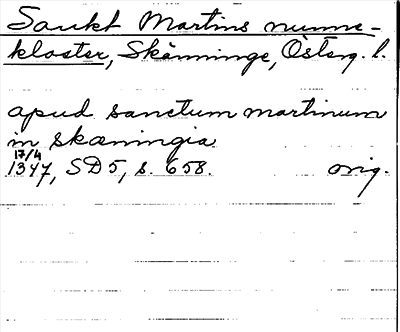 Sankt Martins nunne-
kloster, Skänninge, Österg. l.
apud sanctum martinum
in skæningia
17/4
1347, SD5, s. 658. orig.